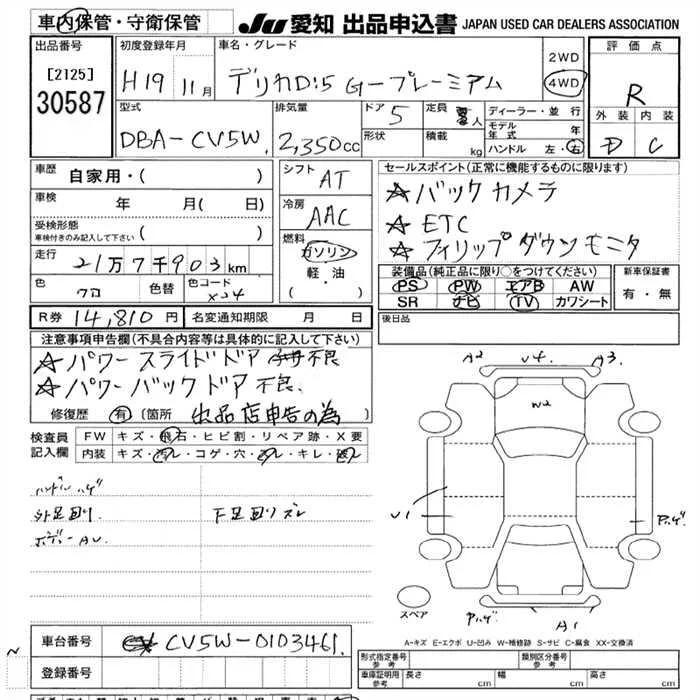 車内保管・守衛保管 JU 愛知 出品申込書 JAPAN USED CAR DEALERS ASSOCIATION
出品番号 [2125] 30587
初度登録年月 H19 11月
車名・グレード デリカD:5 Gープレーミアム
2WD 4WD
評価点 R
外装 内装
D C
型式 DBA-CV5W.
排気量 2,350cc
ドア 5 形状
定員 人 積載 kg
ディーラー・並行
モデル年式 年
ハンドル 左・右
車歴 自家用・( )
車検 年 月( 日)
受検形態 車検付きのみ記入して下さい ( )
走行 21万7千903km
色 クロ 色替 色コード X24
シフト AT
冷房 AAC
燃料 ガソリン 軽・油 ( )
セールスポイント(正常に機能するものに限ります)
☆バックカメラ
☆ETC
☆フィリップダウンモニタ
装備品(純正品に限り○をつけてください)
PS PW エアB AW
SR ナビ TV カワシート
新車保証書 有・無
R券 14,810円 名変通知期限 月 日
後日品
注意事項申告欄(不具合内容等は具体的に記入して下さい)
☆パワースライドドア 不良
☆パワーバックドア 不良.
修復歴 有 (箇所 出品店申告の為 )
検査員記入欄
FW キズ・飛石・ヒビ割・リペア跡・X要
内装 キズ・汚レ・コゲ・穴・スレ・キレ・破レ
ハンドルハゲ
外足回り. 下足回りズレ
ボディーAU
A2 V4. A3.
W2
U1
Pハゲ
Pハゲ
A1
スペア
A-キズ E-エクボ U-凹み W-補修跡 S-サビ C-腐食 XX-交換済
車台番号 CV5W-0103461.
登録番号
形式指定番号 参考 類別区分番号 参考
車庫証明用 参考 長さ cm 幅 cm 高さ cm